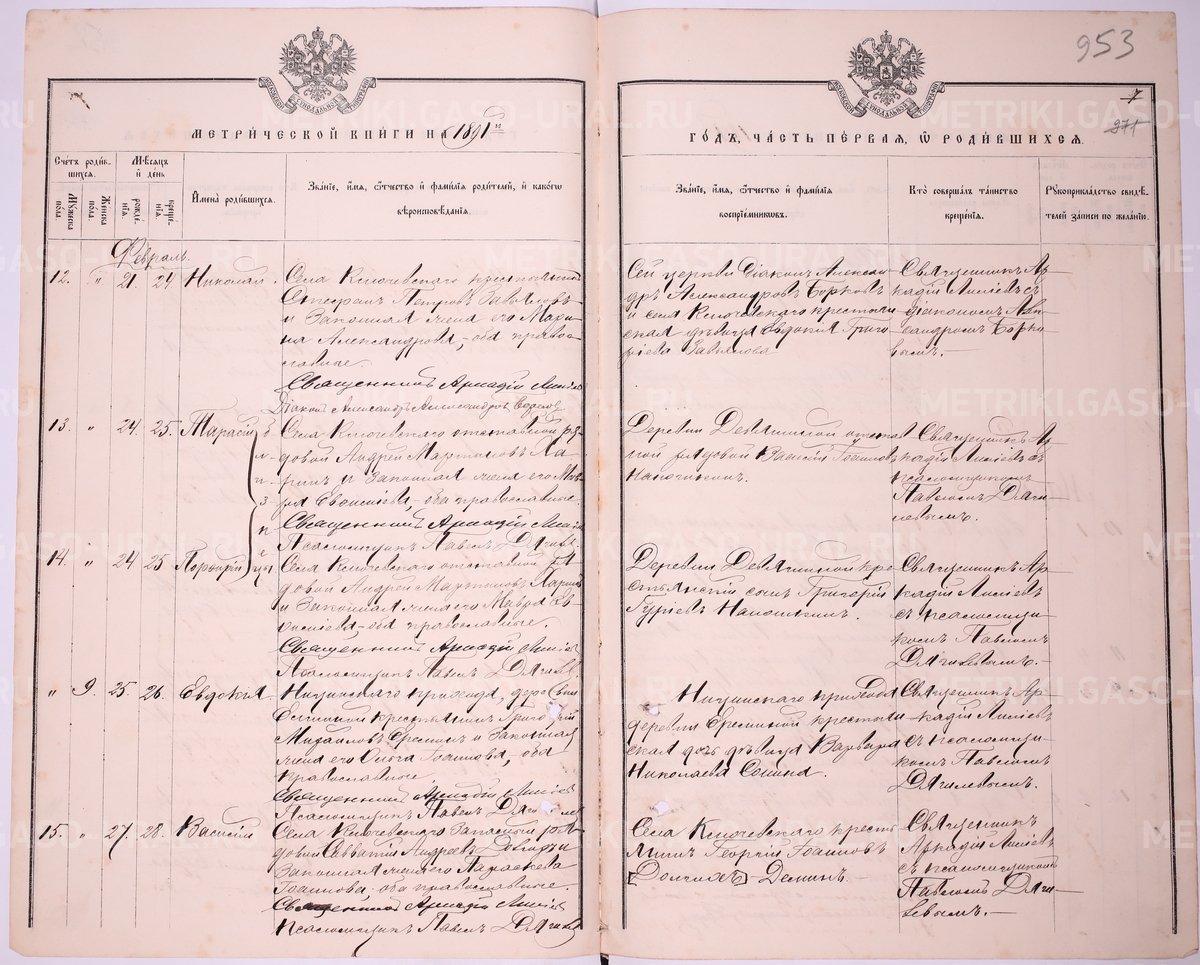 953
7
271
МЕТРИЧЕСКОЙ КНИГИ НА 1891й
ГОДЪ, ЧАСТЬ ПЕРВАЯ, Ѽ РОДИВШИХСЯ.
Счетъ родившихся.
Мужеска пола.
Женска пола.
Мѣсяцъ и день
рожденія.
крещенія.
Имена родившихся.
Званіе, имя, отчество и фамилія родителей, и какогѡ вѣроисповѣданія.
Званіе, имя, отчество и фамилія воспріемниковъ.
Кто совершалъ таинство крещенія.
Рукоприкладство свидѣтелей записи по желанію.
Февраль.
12. " 21. 24 Николай.
Села Ключевскаго крестьянинъ
Стефанъ Петровъ Завьяловъ
и Законная жена его Мари-
на Александрова, оба право-
славные
Священникъ Аркадій
Діаконъ Александръ Александровъ
Сей церкви Діаконъ Алексан-
дръ Александровъ Борковъ
и села Ключевскаго крестьян-
ская дѣвица Евдокія Григо-
ріева Завьялова
Священникъ Ар-
кадій
діакономъ Алек-
сандромъ Борко-
вымъ.
13. " 24. 25. Тарасій
близнецы
Села Ключевскаго отставной ря-
довой Андрей Мартиновъ Ла-
ринъ и Законная жена его Мав-
ра оба православные.
Священникъ Аркадій
Псаломщикъ Павелъ
Деревни отстав-
ной рядовой Василій Іоанновъ
Священникъ Ар-
кадій
псаломщикомъ
Павломъ
14. " 24 25 Порфирій
Села Ключевскаго отставной ря-
довой Андрей Мартиновъ Ларинъ
и Законная жена его Мавра
оба православные.
Священникъ Аркадій
Псаломщикъ Павелъ
Деревни кре-
стьянскій сынъ Григорій
Гуріевъ
Священникъ Ар-
кадій
съ псаломщи-
комъ Павломъ
" 9. 25. 26. Евдокія
Ницинскаго прихода, деревни
Ереминой крестьянинъ Григорій
Михайловъ Ереминъ и Законная
жена его Ольга Іоаннова, оба
православные
Священникъ Аркадій
Псаломщикъ Павелъ
Ницинскаго прихода
деревни Ереминой крестьян-
ская дочь дѣвица Варвара
Николаева
Священникъ Ар-
кадій
съ псаломщи-
комъ Павломъ
15. " 27. 28. Василій
Села Ключевскаго Запасный ря-
довой Савватій Андреевъ
Законная жена его Параскева
Іоаннова оба православные.
Священникъ Аркадій
Псаломщикъ Павелъ
Села Ключевскаго кресть-
янинъ Георгій Іоанновъ
Деминъ.
Священникъ
Аркадій
съ псаломщикомъ
Павломъ
METRIKI.GASO-URAL.RU